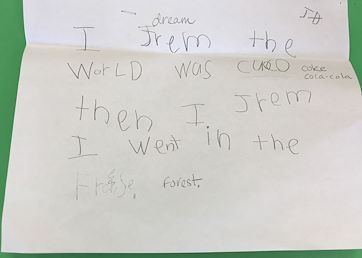 dream
I Jrem the
WorLD was cuko coke cola-cola
then I Jrem
I went in the
Frase. forest.